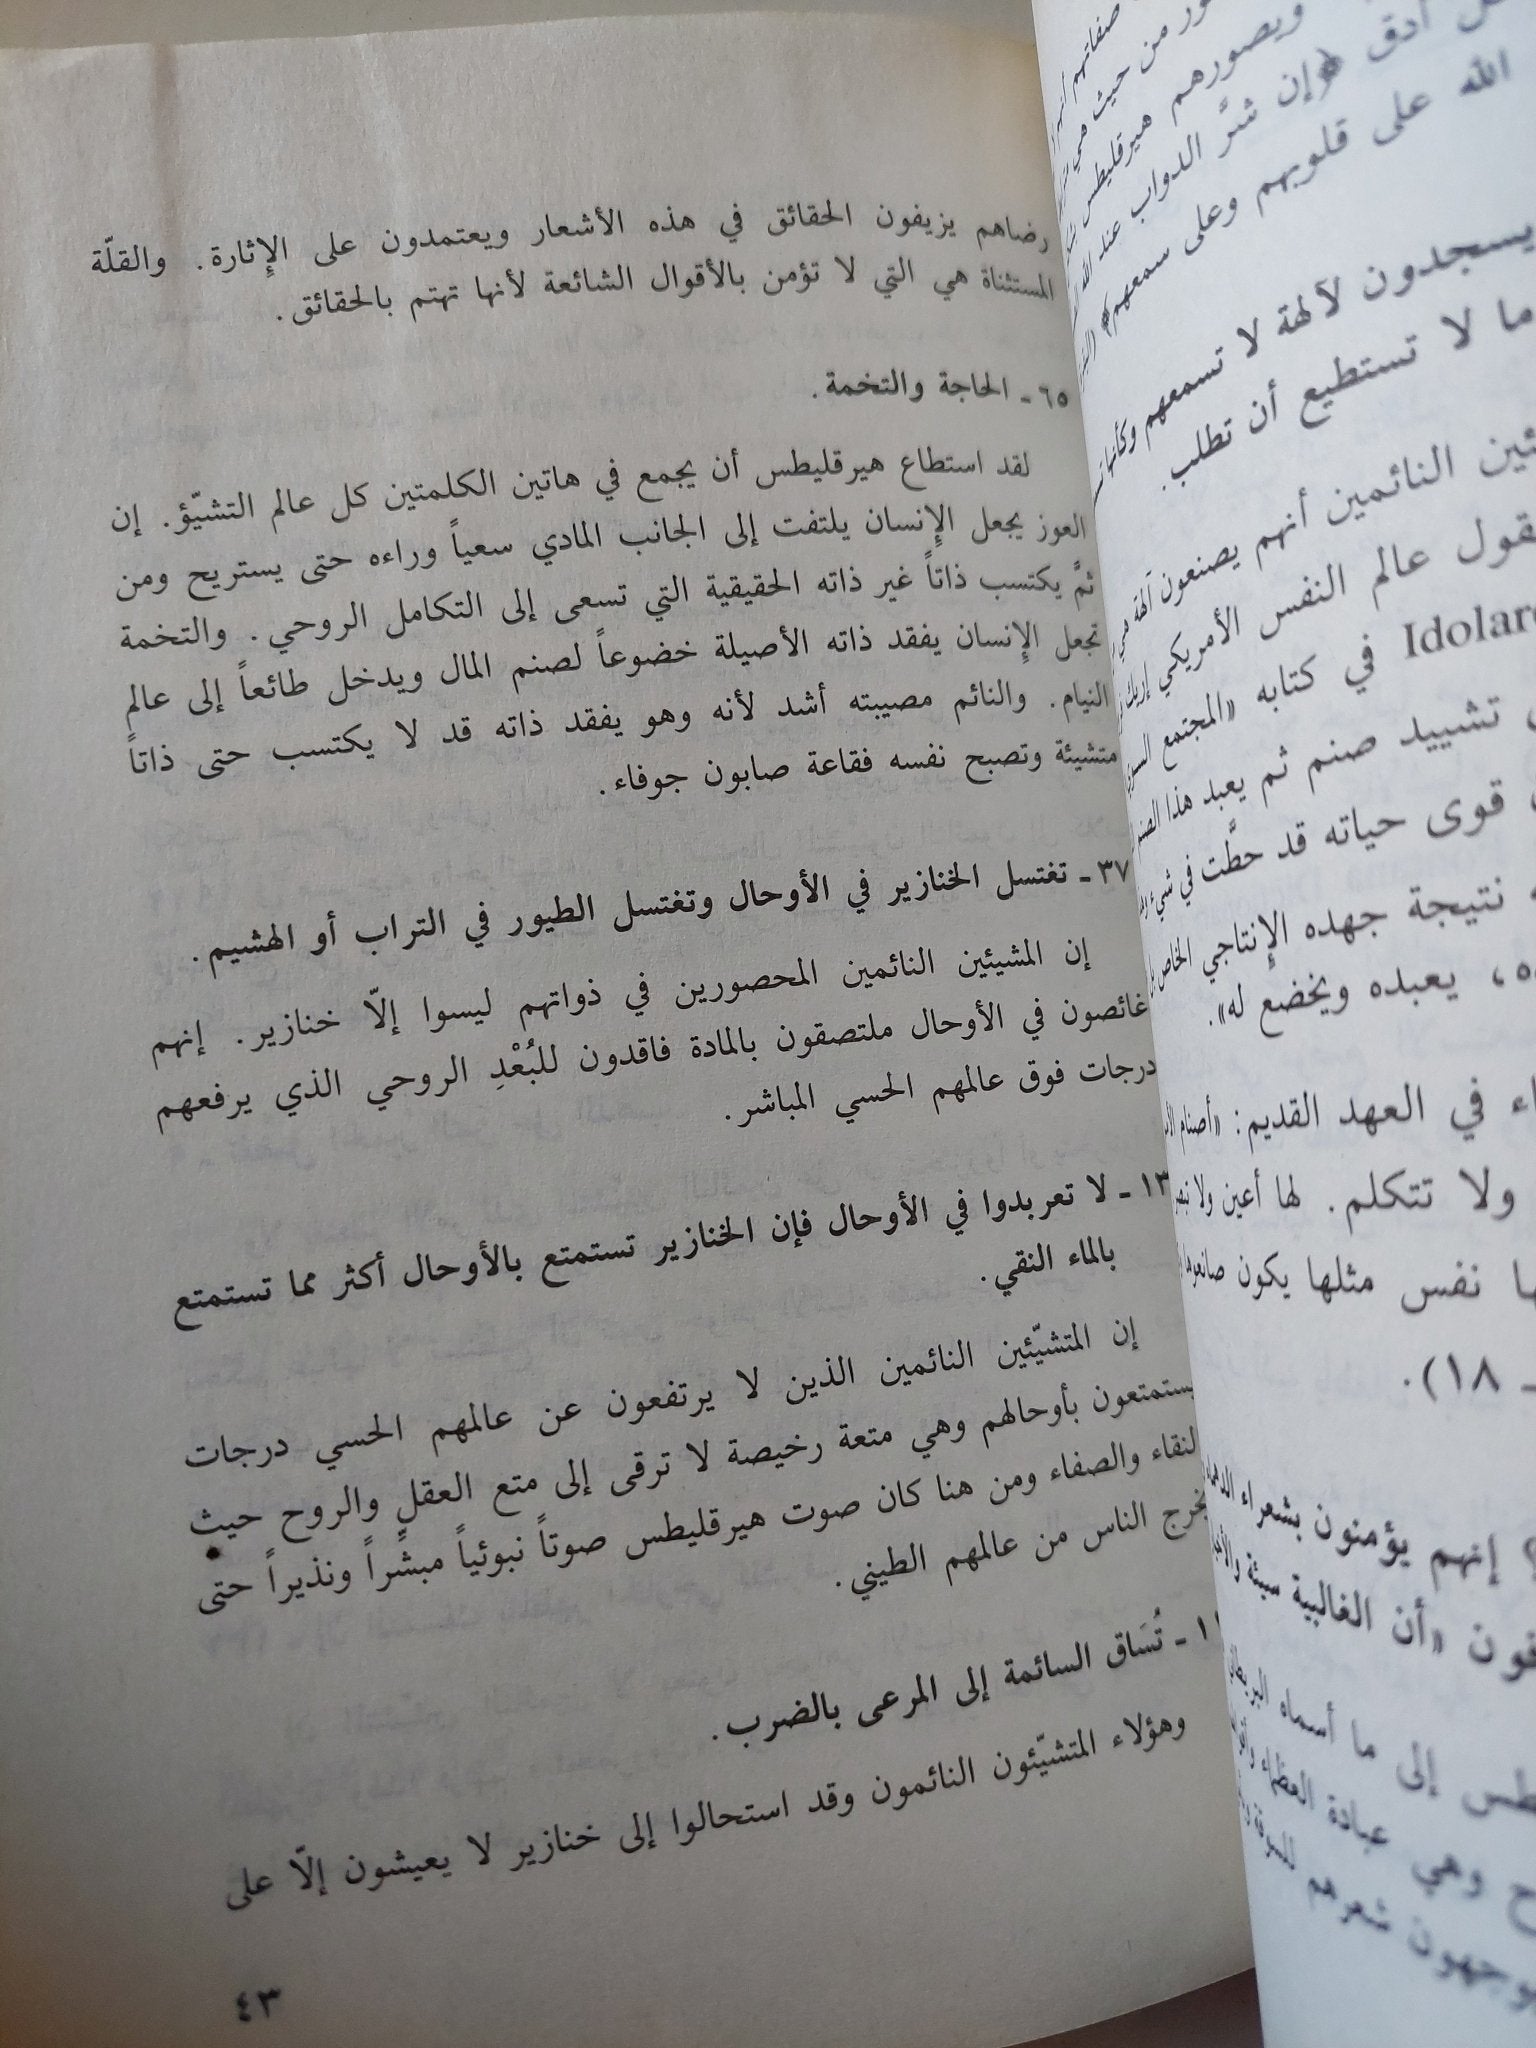 صفاتهم أنهم
ور من حيث هي
ويصورهم هيرقليطس
أدق ﴿إن شرَّ الدواب عند الله
الله على قلوبهم وعلى سمعهم﴾
يسجدون لآلهة لا تسمعهم وكأنها
ما لا تستطيع أن تطلب.
النائمين أنهم يصنعون آلهة
يقول عالم النفس الأمريكي إريك
في كتابه «المجتمع السوي
تشييد صنم ثم يعبد هذا الصنم
قوى حياته قد حطَّت في شيء
نتيجة جهده الإنتاجي الخاص
، يعبده ويخضع له».
في العهد القديم: «أصنام
ولا تتكلم. لها أعين ولا
نفس مثلها يكون صانعوها
ـ ١٨).
؟ إنهم يؤمنون بشعراء
«أن الغالبية سيئة
إلى ما أسماه
وهي عبادة العظماء
شعرهم للسوقة
رضاهم يزيفون الحقائق في هذه الأشعار ويعتمدون على الإثارة. والقلّة
المستثناة هي التي لا تؤمن بالأقوال الشائعة لأنها تهتم بالحقائق.
٦٥ ـ الحاجة والتخمة.
لقد استطاع هيرقليطس أن يجمع في هاتين الكلمتين كل عالم التشيّؤ. إن
العوز يجعل الإنسان يلتفت إلى الجانب المادي سعياً وراءه حتى يستريح ومن
ثمَّ يكتسب ذاتاً غير ذاته الحقيقية التي تسعى إلى التكامل الروحي. والتخمة
تجعل الإنسان يفقد ذاته الأصيلة خضوعاً لصنم المال ويدخل طائعاً إلى عالم
النيام. والنائم مصيبته أشد لأنه وهو يفقد ذاته قد لا يكتسب حتى ذاتاً
متشيئة وتصبح نفسه فقاعة صابون جوفاء.
٣٧ ـ تغتسل الخنازير في الأوحال وتغتسل الطيور في التراب أو الهشيم.
إن المشيئين النائمين المحصورين في ذواتهم ليسوا إلّا خنازير. إنهم
غائصون في الأوحال ملتصقون بالمادة فاقدون للبُعْدِ الروحي الذي يرفعهم
درجات فوق عالمهم الحسي المباشر.
١٣ ـ لا تعربدوا في الأوحال فإن الخنازير تستمتع بالأوحال أكثر مما تستمتع
بالماء النقي.
إن المتشيّئين النائمين الذين لا يرتفعون عن عالمهم الحسي درجات
يستمتعون بأوحالهم وهي متعة رخيصة لا ترقى إلى متع العقل والروح حيث
النقاء والصفاء ومن هنا كان صوت هيرقليطس صوتاً نبوئياً مبشِّراً ونذيراً حتى
يخرج الناس من عالمهم الطيني.
ـ تُسَاق السائمة إلى المرعى بالضرب.
وهؤلاء المتشيّئون النائمون وقد استحالوا إلى خنازير لا يعيشون إلّا على
٤٣